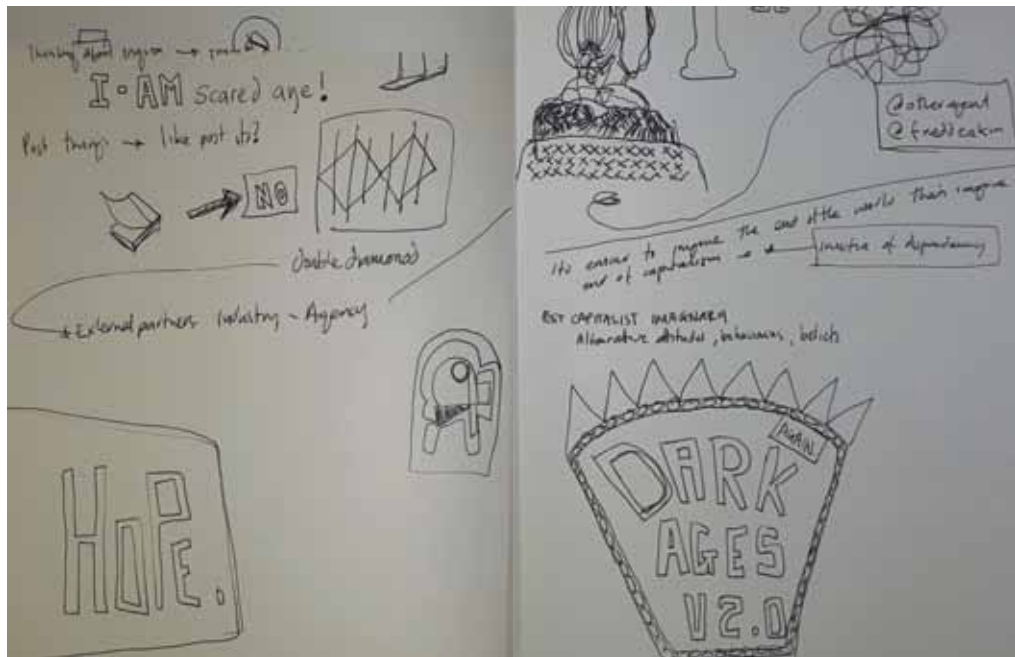 Thinking about →
I · AM scared age!
Post things → like post its?
NO
double diamond
External partners Industry - Agency
HOPE.
@otheragent
@freddeakin
Its easier to imagine the end of the world than imagine
end of capitalism
of dependency
CAPITALIST
Alternative attitudes, behaviours, beliefs
AGAIN
DARK
AGES
V2.0